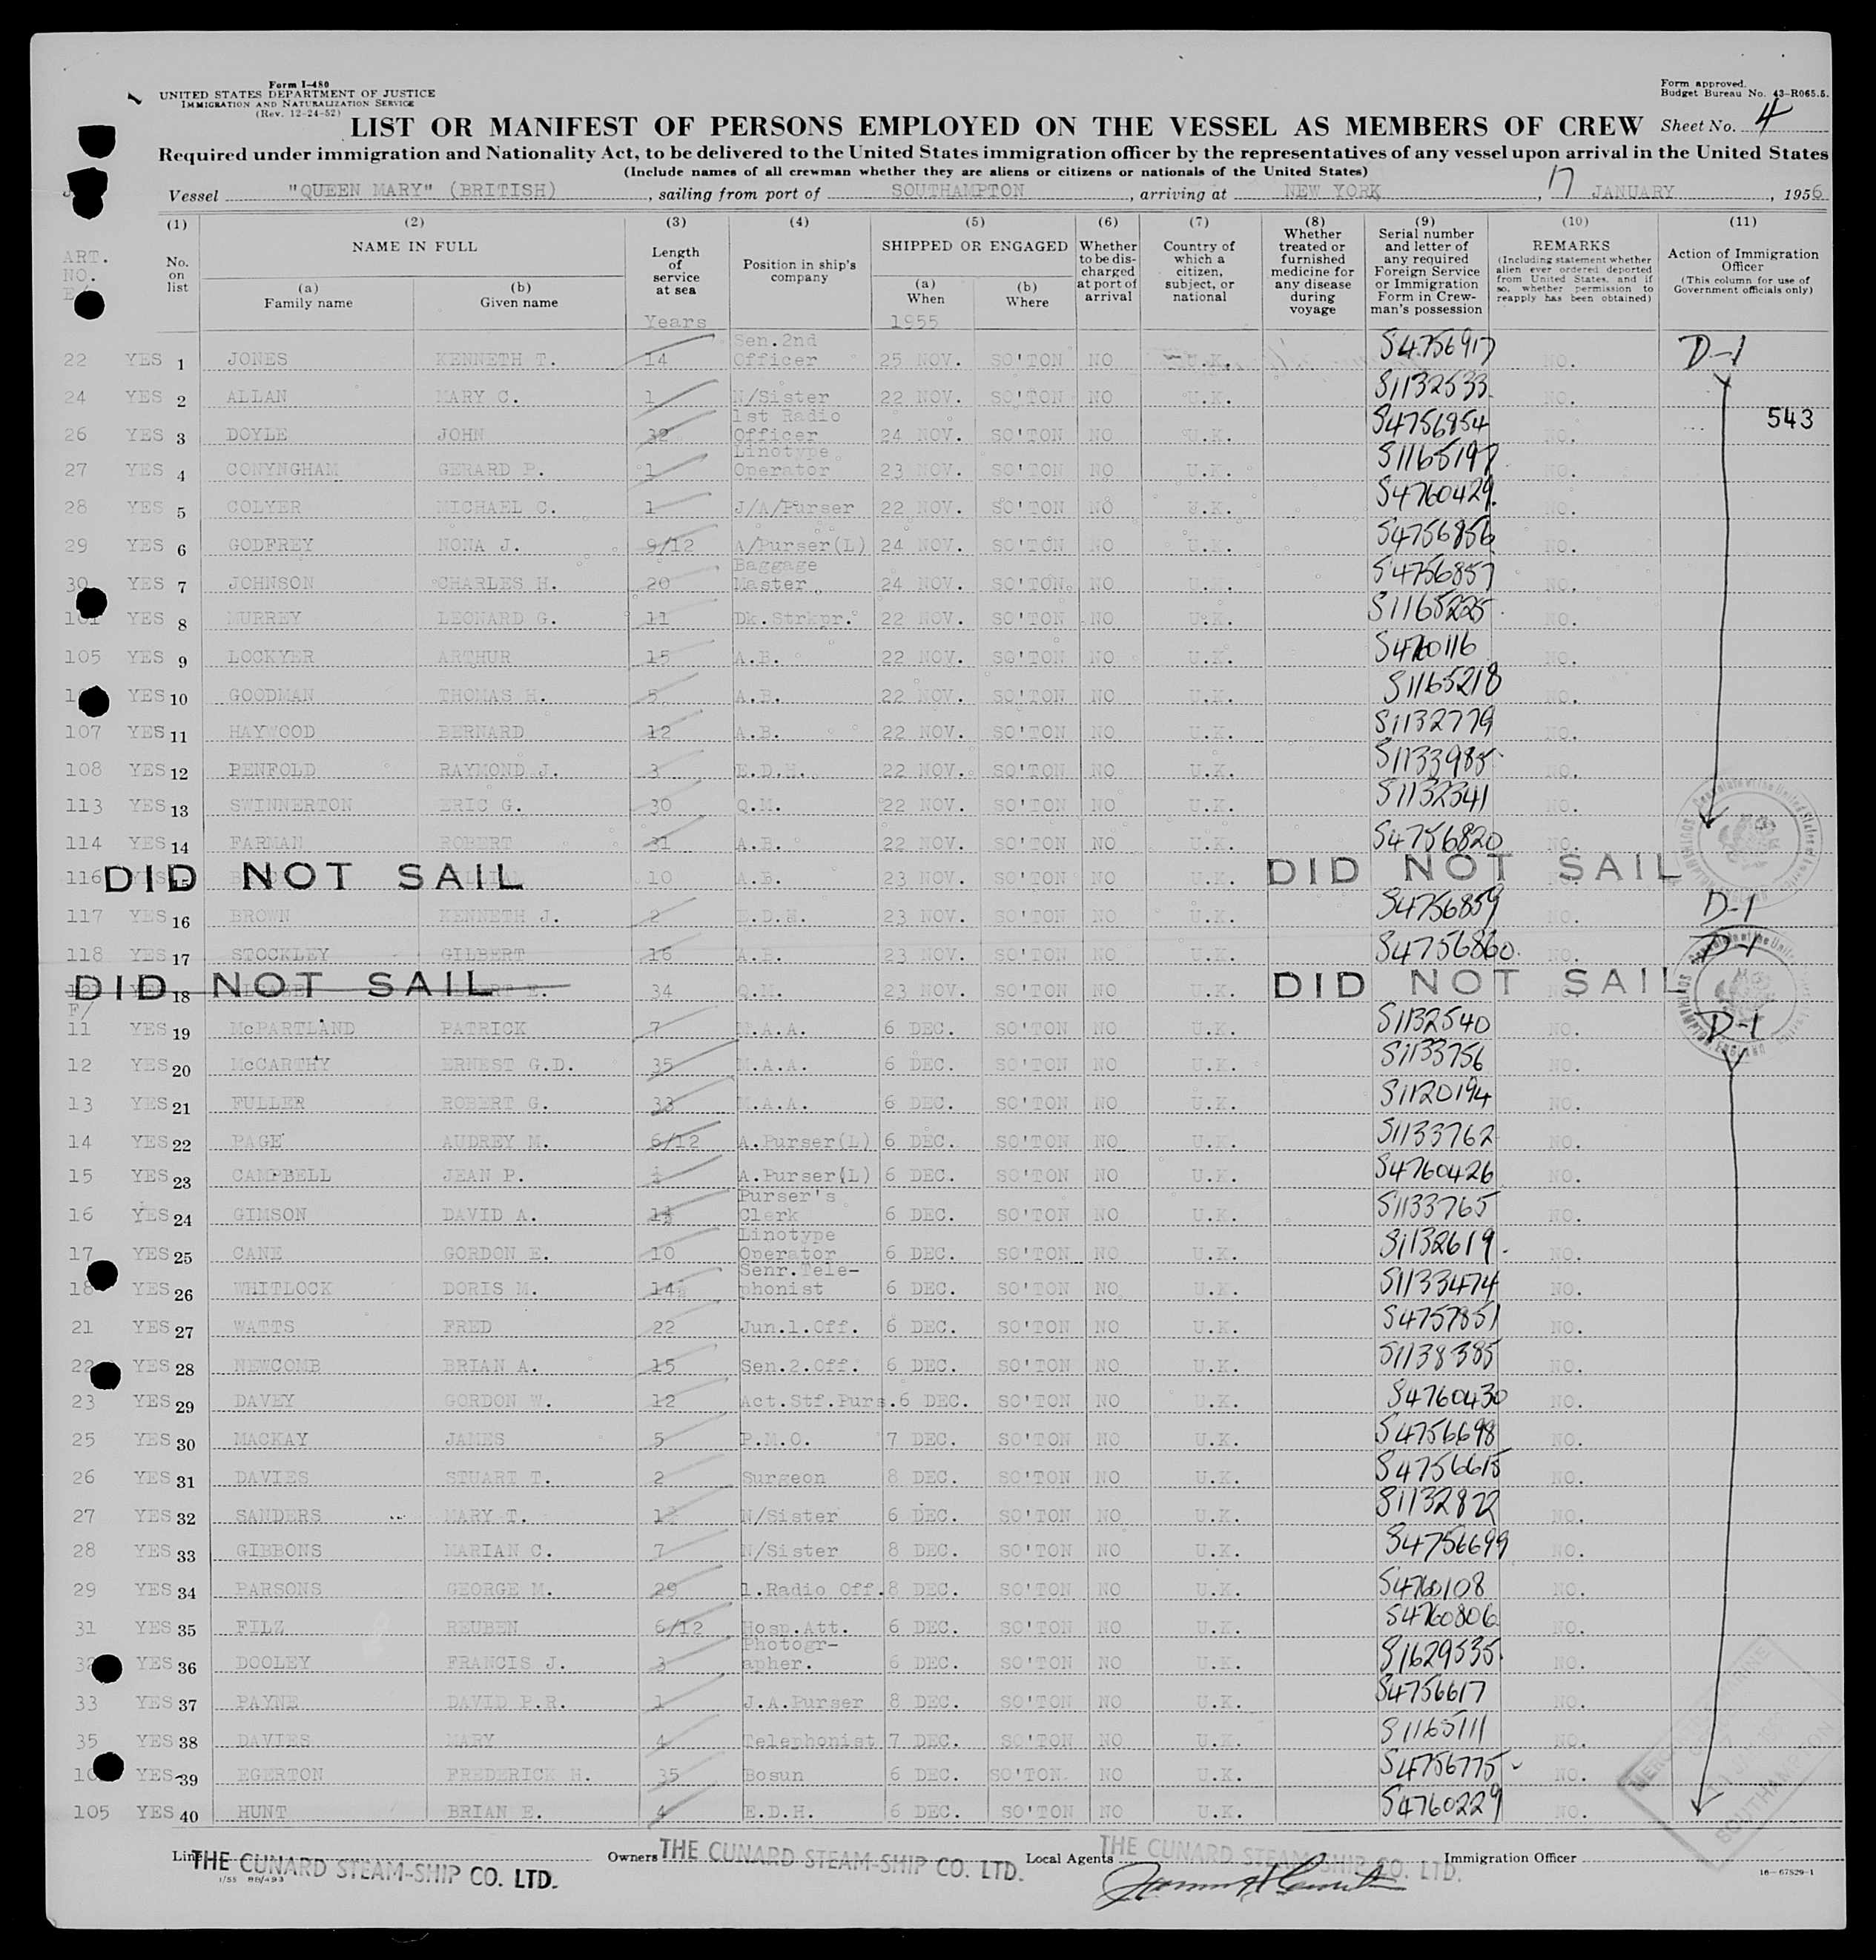 Form I-480
UNITED STATES DEPARTMENT OF JUSTICE
IMMIGRATION AND NATURALIZATION SERVICE
(Rev. 12-24-52)
Form approved.
Budget Bureau No. 43-R065.5.
LIST OR MANIFEST OF PERSONS EMPLOYED ON THE VESSEL AS MEMBERS OF CREW Sheet No. 4
Required under immigration and Nationality Act, to be delivered to the United States immigration officer by the representatives of any vessel upon arrival in the United States
(Include names of all crewman whether they are aliens or citizens or nationals of the United States)
Vessel "QUEEN MARY" (BRITISH), sailing from port of SOUTHAMPTON, arriving at NEW YORK, 17 JANUARY, 1956
(1) (2) (3) (4) (5) (6) (7) (8) (9) (10) (11)
ART. NO.
No. on list
NAME IN FULL
(a) Family name
(b) Given name
Length of service at sea
Years
Position in ship's company
SHIPPED OR ENGAGED
(a) When
1955
(b) Where
Whether to be discharged at port of arrival
Country of which a citizen, subject, or national
Whether treated or furnished medicine for any disease during voyage
Serial number and letter of any required Foreign Service or Immigration Form in Crewman's possession
REMARKS
(Including statement whether alien ever ordered deported from United States, and if so, whether permission to reapply has been obtained)
Action of Immigration Officer
(This column for use of Government officials only)
22 YES 1 JONES KENNETH T. 14 Sen.2nd Officer 25 NOV. SO'TON NO U.K. S4756917 NO. D-1
24 YES 2 ALLAN MARY C. 1 N/Sister 22 NOV. SO'TON NO U.K. S1132533 NO.
543
26 YES 3 DOYLE JOHN 32 1st Radio Officer 24 NOV. SO'TON NO U.K. S4756854 NO.
27 YES 4 CONYNGHAM GERARD P. 1 Linotype Operator 23 NOV. SO'TON NO U.K. S1165197 NO.
28 YES 5 COLYER MICHAEL C. 1 J/A/Purser 22 NOV. SO'TON NO U.K. S4760429. NO.
29 YES 6 GODFREY NONA J. 9/12 A/Purser(L) 24 NOV. SO'TON NO U.K. S4756856 NO.
30 YES 7 JOHNSON CHARLES H. 20 Baggage Master 24 NOV. SO'TON NO U.K. S4756857 NO.
101 YES 8 MURREY LEONARD G. 11 Dk.Strkpr. 22 NOV. SO'TON NO U.K. S1165225 NO.
105 YES 9 LOCKYER ARTHUR 15 A.B. 22 NOV. SO'TON NO U.K. S4760116 NO.
YES 10 GOODMAN THOMAS H. 5 A.B. 22 NOV. SO'TON NO U.K. S1165218 NO.
107 YES 11 HAYWOOD BERNARD 12 A.B. 22 NOV. SO'TON NO U.K. S1132779 NO.
108 YES 12 PENFOLD RAYMOND J. 3 E.D.H. 22 NOV. SO'TON NO U.K. S1133985 NO.
113 YES 13 SWINNERTON ERIC G. 30 Q.M. 22 NOV. SO'TON NO U.K. S1132341 NO.
114 YES 14 FARMAN ROBERT 31 A.B. 22 NOV. SO'TON NO U.K. S4756820 NO.
116 DID NOT SAIL 10 A.B. 23 NOV. SO'TON NO U.K. DID NOT SAIL
117 YES 16 BROWN KENNETH J. 2 E.D.H. 23 NOV. SO'TON NO U.K. S4756859 NO. D-1
118 YES 17 STOCKLEY GILBERT 16 A.B. 23 NOV. SO'TON NO U.K. S4756860. NO. D-1
DID NOT SAIL 18 34 Q.M. 23 NOV. SO'TON NO U.K. DID NOT SAIL
F/
11 YES 19 McPARTLAND PATRICK 7 M.A.A. 6 DEC. SO'TON NO U.K. S1132540 NO. D-1
12 YES 20 McCARTHY ERNEST G.D. 35 M.A.A. 6 DEC. SO'TON NO U.K. S1133756 NO.
13 YES 21 FULLER ROBERT G. 33 M.A.A. 6 DEC. SO'TON NO U.K. S1120194 NO.
14 YES 22 PAGE AUDREY M. 6/12 A.Purser(L) 6 DEC. SO'TON NO U.K. S1133762 NO.
15 YES 23 CAMPBELL JEAN P. ½ A.Purser(L) 6 DEC. SO'TON NO U.K. S4760426 NO.
16 YES 24 GIMSON DAVID A. 1½ Purser's Clerk 6 DEC. SO'TON NO U.K. S1133765 NO.
17 YES 25 CANE GORDON E. 10 Linotype Operator 6 DEC. SO'TON NO U.K. S1132619 NO.
18 YES 26 WHITLOCK DORIS M. 14½ Senr.Tele-phonist 6 DEC. SO'TON NO U.K. S1133474 NO.
21 YES 27 WATTS FRED 22 Jun.1.Off. 6 DEC. SO'TON NO U.K. S4757851 NO.
22 YES 28 NEWCOMB BRIAN A. 15 Sen.2.Off. 6 DEC. SO'TON NO U.K. S1138385 NO.
23 YES 29 DAVEY GORDON W. 12 Act.Stf.Purs. 6 DEC. SO'TON NO U.K. S4760430 NO.
25 YES 30 MACKAY JAMES 5 P.M.O. 7 DEC. SO'TON NO U.K. S4756698 NO.
26 YES 31 DAVIES STUART T. 2 Surgeon 8 DEC. SO'TON NO U.K. S4756615 NO.
27 YES 32 SANDERS MARY T. 1½ N/Sister 6 DEC. SO'TON NO U.K. S1132822 NO.
28 YES 33 GIBBONS MARIAN C. 7 N/Sister 8 DEC. SO'TON NO U.K. S4756699 NO.
29 YES 34 PARSONS GEORGE M. 29 1.Radio Off. 8 DEC. SO'TON NO U.K. S4760108 NO.
31 YES 35 FILZ REUBEN 6/12 Hosp.Att. 6 DEC. SO'TON NO U.K. S4760806 NO.
32 YES 36 DOOLEY FRANCIS J. 3 Photogr-apher. 6 DEC. SO'TON NO U.K. S1629535 NO.
33 YES 37 PAYNE DAVID P.R. 1 J.A.Purser 8 DEC. SO'TON NO U.K. S4756617 NO.
35 YES 38 DAVIES MARY 4 Telephonist 7 DEC. SO'TON NO U.K. S1165111 NO.
YES 39 EGERTON FREDERICK H. 35 Bosun 6 DEC. SO'TON NO U.K. S4756775 NO.
105 YES 40 HUNT BRIAN E. 4 E.D.H. 6 DEC. SO'TON NO U.K. S4760229 NO.
Line THE CUNARD STEAM-SHIP CO. LTD. Owners THE CUNARD STEAM-SHIP CO. LTD. Local Agents THE CUNARD STEAM-SHIP CO. LTD. Immigration Officer
1/55 BB/493
16-67529-1